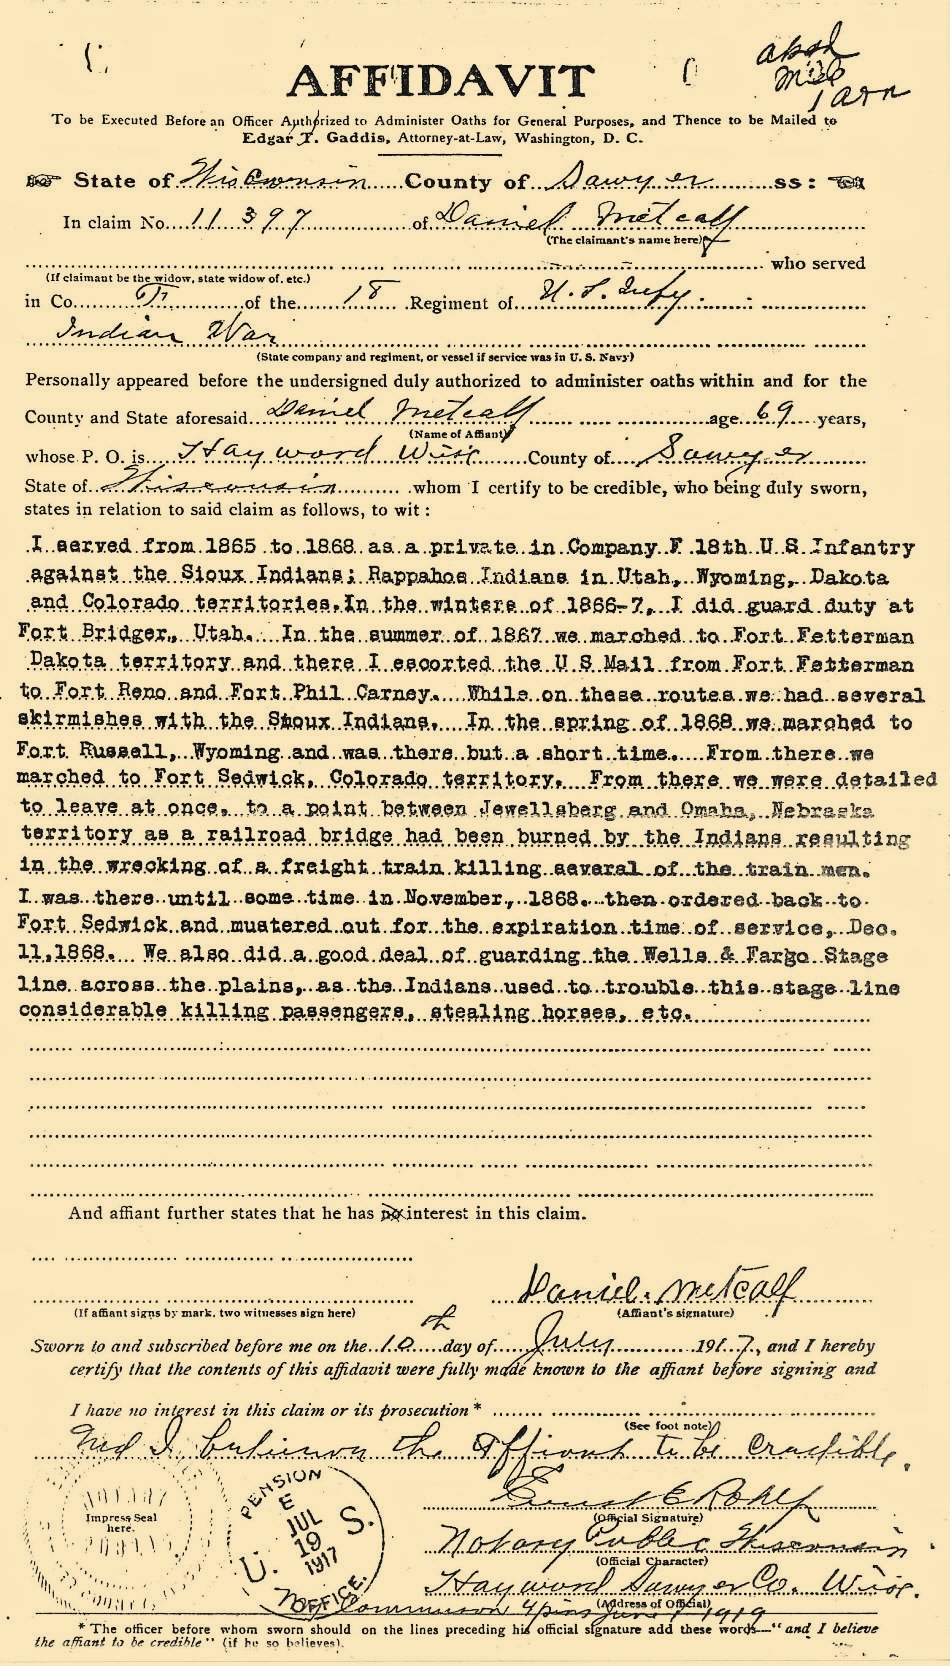 Absh
AFFIDAVIT
To be Executed Before an Officer Authorized to Administer Oaths for General Purposes, and Thence to be Mailed to
Edgar T. Gaddis, Attorney-at-Law, Washington, D. C.
State of Wisconsin County of Sawyer ss:
In claim No. 11397 of Daniel Metcalf
(The claimant's name here)
who served
(If claimant be the widow, state widow of, etc.)
in Co. F of the 18 Regiment of U.S. Infy.
Indian War
(State company and regiment, or vessel if service was in U. S. Navy)
Personally appeared before the undersigned duly authorized to administer oaths within and for the
County and State aforesaid Daniel Metcalf age 69 years,
(Name of Affiant)
whose P. O. is Hayword Wisc County of Sawyer
State of Wisconsin whom I certify to be credible, who being duly sworn,
states in relation to said claim as follows, to wit:
I served from 1865 to 1868 as a private in Company F 18th U S Infantry
against the Sioux Indians; Rappahoe Indians in Utah, Wyoming, Dakota
and Colorado territories. In the winters of 1866-7, I did guard duty at
Fort Bridger, Utah. In the summer of 1867 we marched to Fort Fetterman
Dakota territory and there I escorted the U S Mail from Fort Fetterman
to Fort Reno and Fort Phil Carney. While on these routes we had several
skirmishes with the Sioux Indians. In the spring of 1868 we marched to
Fort Russell, Wyoming and was there but a short time. From there we
marched to Fort Sedwick, Colorado territory. From there we were detailed
to leave at once, to a point between Jewellsberg and Omaha, Nebraska
territory as a railroad bridge had been burned by the Indians resulting
in the wrecking of a freight train killing several of the train men.
I was there until some time in November, 1868. then ordered back to
Fort Sedwick and mustered out for the expiration time of service, Dec.
11,1868. We also did a good deal of guarding the Wells & Fargo Stage
line across the plains, as the Indians used to trouble this stage line
considerable killing passengers, stealing horses, etc.
And affiant further states that he has no interest in this claim.
Daniel Metcalf
(If affiant signs by mark, two witnesses sign here) (Affiant's signature)
Sworn to and subscribed before me on the 10th day of July 1917, and I hereby
certify that the contents of this affidavit were fully made known to the affiant before signing and
I have no interest in this claim or its prosecution*
(See foot note)
And I believe the affiant to be credible.
Ernst E Rohlf
(Official Signature)
Impress Seal
here.
PENSION
JUL
19
1917
U. S.
OFFICE.
Notary Public Wisconsin
(Official Character)
Hayword Sawyer Co. Wisc.
(Address of Official)
Commission June 1 1919
* The officer before whom sworn should on the lines preceding his official signature add these words—"and I believe
the affiant to be credible" (if he so believes).